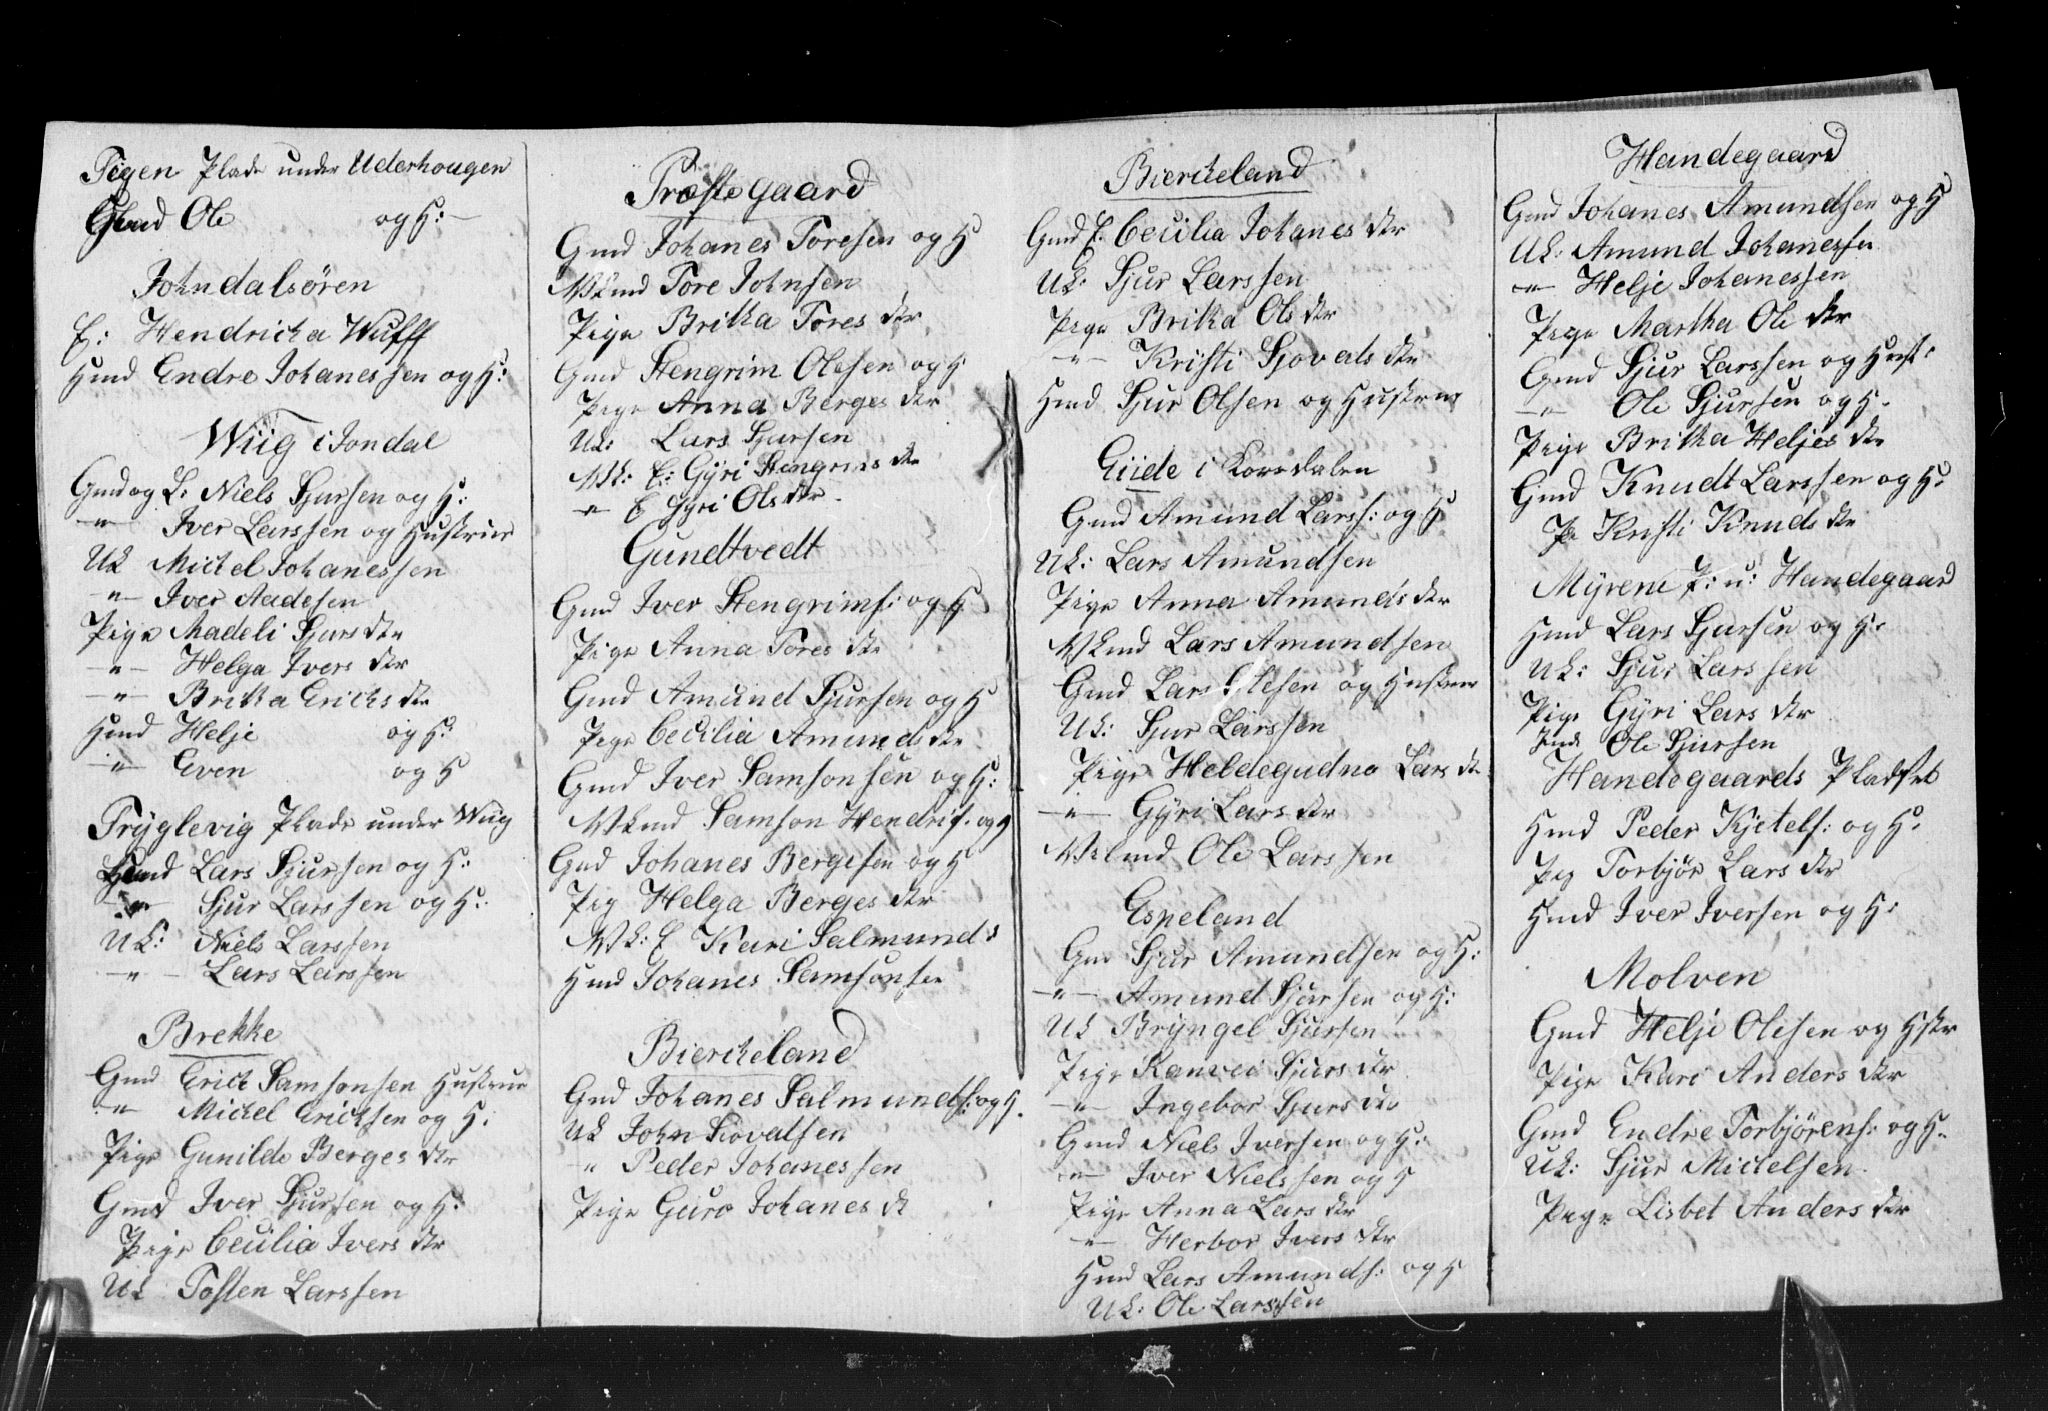 Tigen Plads under Uderhougen
Gmd Ole og H:
Johndalsören
E: Hendricka Wulff
Hmd Endre Johanessen og H:
Wiig i Jondal
Gmd og L. Niels Sjursen og H:
" Iver Larssen og Hustruer
Uk Mickel Johanessen
" Iver Aadesen
Pige Madeli Sjurs dtr
" Helga Ivers dtr
" Britha Erichs dtr
Hmd Helje og H:
" Even og H
Tryglevig Plads under Wiig
Hmd Lars Sjursen og H:
" Sjur Larssen og H:
Uk: Niels Larssen
" Lars Larssen
Brekke
Gmd Erick Samsonsen Hustrue
" Mickel Ericksen og H:
Pige Gunilde Berges dtr
Gmd Iver Sjursen og H:
Pige Cecilia Ivers dtr
Uk Tosten Larssen
Præstegaard
Gmd Johanes Toresen og H
Nkmd Tore Johnsen
Pige Britha Tores dtr
Gmd Stengrim Olesen og H
Pige Anna Berges dtr
Uk: Lars Sjursen
Nk: E: Gyri Stengrims dtr
" E Gyri Ols dtr
Gundtvedt
Gmd Iver Stengrims: og H
Pige Anna Tores dtr
Gmd Amund Sjursen og H
Pige Cecilia Amunds dtr
Gmd Iver Samsonsen og H:
Nkmd Samson Hendrics. og H
Gmd Johanes Bergesen og H
Pig Helga Berges dtr
Nk: E Kari Salmunds
Hmd Johanes Samsonsen
Bierckeland
Gmd Johanes Salmunds: og H.
Uk John Siovalsen
" Peder Johanessen
Pige Guro Johanes d
Bierckeland
Gmd E. Cecilia Johanes dtr
Uk: Sjur Larssen
Pige Britha Ols dtr
" Kristi Sjovals dtr
Hmd Sjur Olsen og Hustrue
Eiide i Korsdalen
Gmd Amund Larss: og H
Uk: Lars Amundsen
Pige Anna Amunds dtr
Nkmd Lars Amundsen
Gmd Lars Olesen og Hustrue
Uk: Sjur Larssen
Pige Heldegudna Lars dtr
" Gyri Lars dtr
Nkmd Ole Larssen
Espeland
Gm Sjur Amundsen og H:
" Amund Sjursen og H:
Uk Bryngel Sjursen
Pige Ranvei Sjurs dtr
" Ingebor Sjurs dtr
Gmd Niels Iversen og H:
" Iver Nielssen og H
Pige Anna Lars dtr
" Herbor Ivers dtr
Hmd Lars Amunds: og H
Uk: Ole Larssen
Handegaard
Gmd Johanes Amundsen og H
Uk: Amund Johanessen
" Helje Johanessen
Pige Martha Ole dtr
Gmd Sjur Larssen og Hust:
" Ole Sjursen og H.
Pige Britha Heljes dtr
Gmd Knudt Larssen og H:
Pe Kristi Knuds dtr
Myrene P: u: Handegaard
Hmd Lars Sjursen og H:
Uk: Sjur Larssen
Pige Gyri Lars dtr
Ole Sjursen
Handegaards Pladset
Hmd Peder Kjetels: og H.
Pig Torbjör Lars dtr
Hmd Iver Iversen og H:
Molven
Gmd Helje Olesen og Hstr
Pige Kari Anders dtr
Gmd Endre Torbjørens: og H.
Uk: Sjur Mickelsen
Pige Lisbet Anders dtr